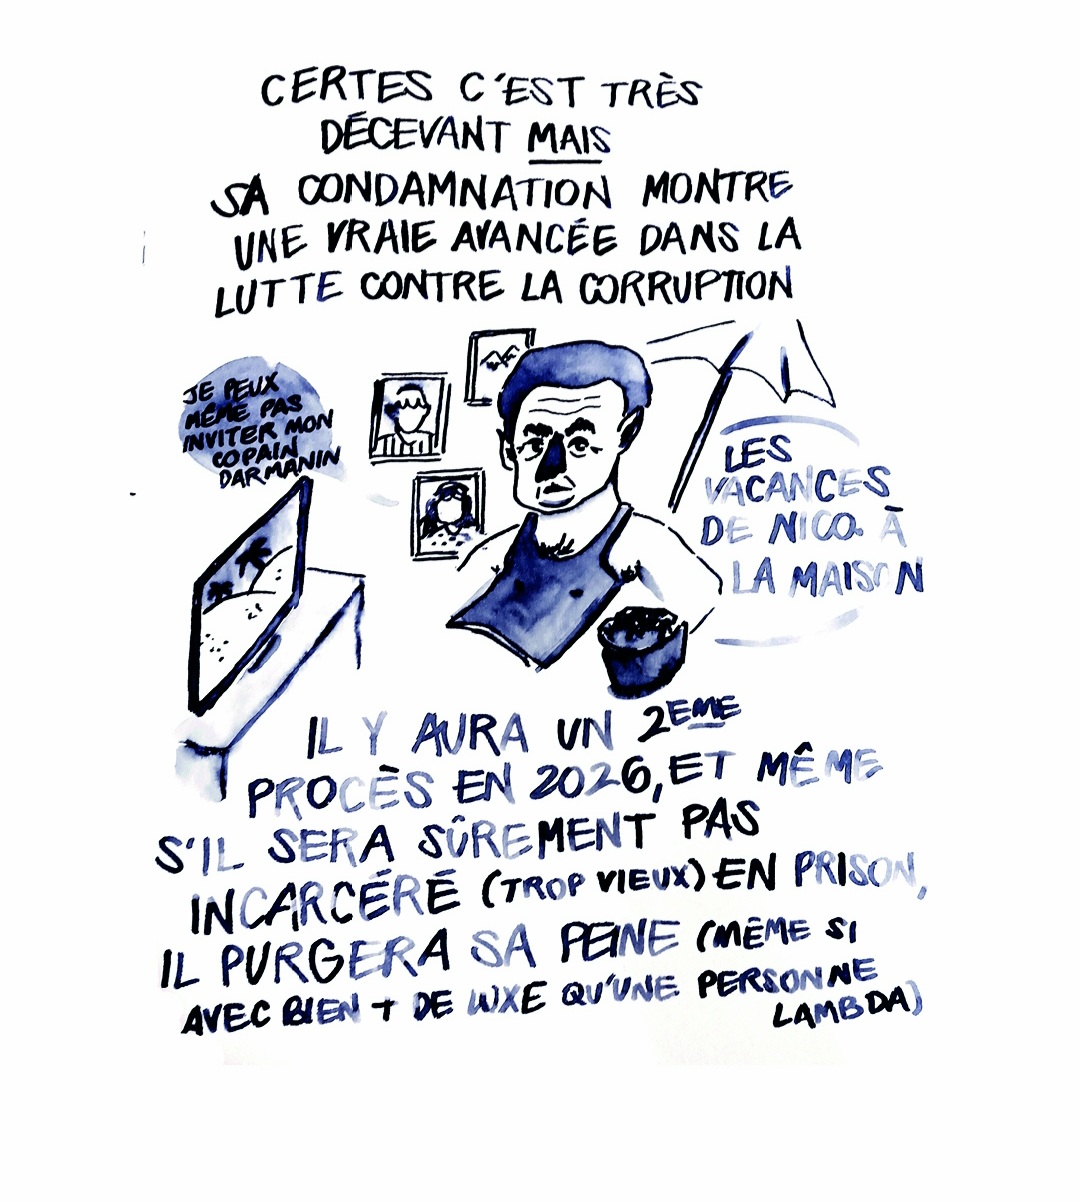 CERTES C'EST TRÈS
DÉCEVANT MAIS
SA CONDAMNATION MONTRE
UNE VRAIE AVANCÉE DANS LA
LUTTE CONTRE LA CORRUPTION
JE PEUX
MÊME PAS
INVITER MON
COPAIN
DARMANIN
LES
VACANCES
DE NICO À
LA MAISON
IL Y AURA UN 2EME
PROCÈS EN 2026, ET MÊME
S'IL SERA SÛREMENT PAS
INCARCÉRÉ (TROP VIEUX) EN PRISON,
IL PURGERA SA PEINE (MÊME SI
AVEC BIEN + DE LUXE QU'UNE PERSONNE
LAMBDA)